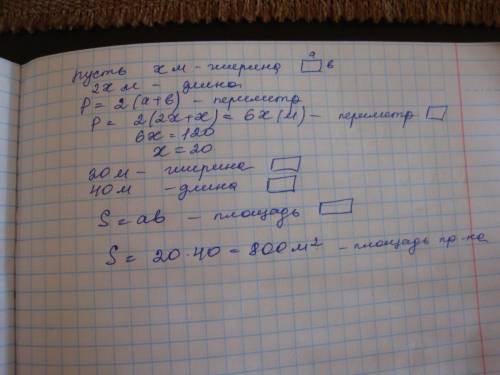 пусть x м - ширина a в
2x м - длина
P = 2(a+в) - периметр
P = 2(2x+x) = 6x (м) - периметр
6x = 120
x = 20
20 м - ширина
40 м - длина
S = aв - площадь
S = 20·40 = 800 м² - площадь пр-ка